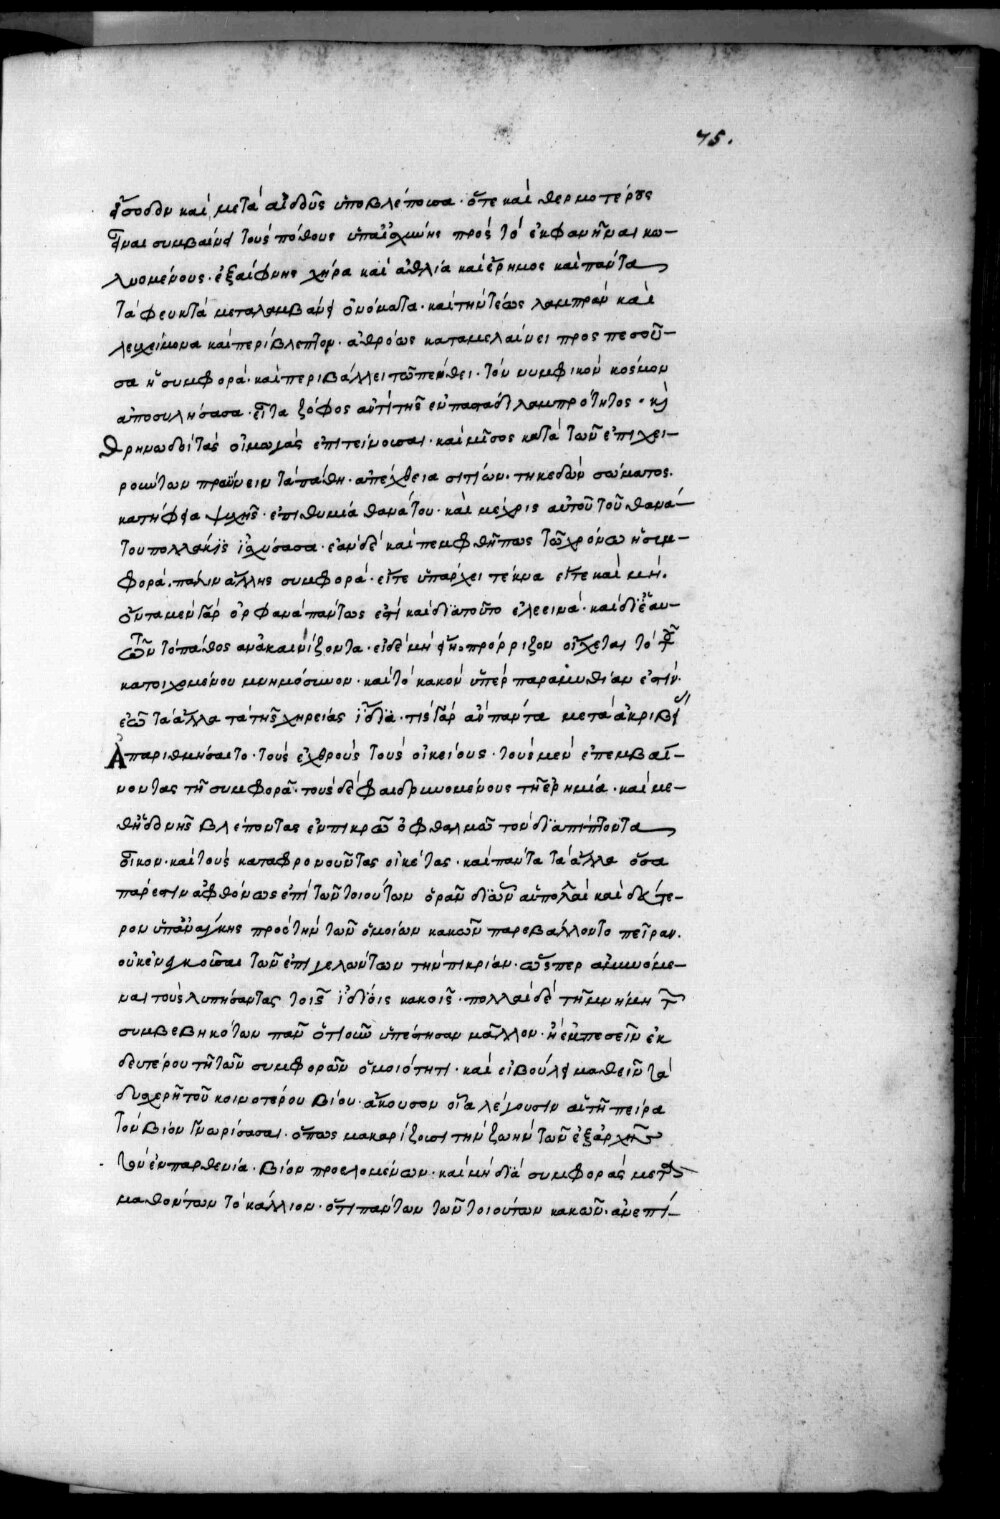 75.
εἴσοδον καὶ μετὰ αἰδοῦς ὑποβλέπουσα· ὅτε καὶ θερμοτέρους
εἶναι συμβαίνει τοὺς πόθους ὑπαἰσχύνης πρὸς τὸ ἐκφανῆναι κω–
λυομένους· ἐξαίφνης χήρα καὶ ἀθλία καὶ ἔρημος καὶ πάντα
τὰ φευκτὰ μεταλαμβάνει ὀνόματα· καὶ τὴν τέως λαμπρὰν καὶ
λευχείμονα καὶ περίβλεπτον· ἀθρόως καταμελαίνει προσπεσοῦ–
σα ἡ συμφορὰ· καὶ περιβάλλει τῶ πένθει· τὸν νυμφικὸν κόσμον
ἀποσυλήσασα· εἶτα ζόφος ἀντὶ τῆς ἐν παστάδι λαμπρότητος· κὶ
θρηνωδοί τὰς οἰμωγὰς ἐπιτείνουσαι· καὶ μῖσος κατὰ τῶν ἐπιχει–
ρούντων πραΰνειν τὰ πάθη· ἀπέχθεια σιτίων· τηκεδὼν σώματος·
κατήφεια ψυχῆς· ἐπιθυμία θανάτου· καὶ μέχρις αὐτοῦ τοῦ θανά–
του πολλάκις ἰσχύσασα· ἐὰν δὲ καὶ πεμφθῆ πως τῶ χρόνω ἡ συμ–
φορὰ· πάλιν ἄλλης συμφορὰ· εἴτε ὑπάρχει τέκνα εἴτε καὶ μή·
ὄντα μὲν γὰρ ὀρφανὰ πάντως ἐστὶ καὶ διὰ τοῦτο ἐλεεινὰ· καὶ δι' ἑαυ–
τῶν τὸ πάθος ἀνακαινίζοντα· εἰ δὲ μὴ εἴη· πρόρριζον οἴχεται τὸ τοῦ
κατοιχομένου μνημόσυνον· καὶ τὸ κακὸν ὑπὲρ παραμυθίαν ἐστίν·
ἐῶ τὰ ἄλλα τὰ τῆς χηρείας ἴδια· τίς γὰρ ἂν πάντα μετὰ ἀκριβείας
Ἀπαριθμήσαιτο· τοὺς ἐχθροὺς τοὺς οἰκείους· τοὺς μὲν ἐπεμβαί–
νοντας τῆ συμφορᾶ· τοὺς δὲ φαιδρυνομένους τῆ ἐρημία· καὶ με–
θἡδονῆς βλέποντας ἐν πικρῶ ὀφθαλμῶ τὸν διαπίπτοντα
οἶκον· καὶ τοὺς καταφρονοῦντας οἰκέτας· καὶ πάντα τὰ ἄλλα ὅσα
πάρεστιν ἀφθόνως ἐπὶ τῶν τοιούτων ὁρᾶν δι' ὧν αἱ πολλαὶ καὶ δεύτε–
ρον ὑπ' ἀνάγκης πρὸς τὴν τῶν ὁμοίων κακῶν παρεβάλλοντο πεῖραν·
οὐκ ἐνεγκοῦσαι τῶν ἐπιγελώντων τὴν πικρίαν· ὥσπερ ἀμυνόμε–
ναι τοὺς λυπήσαντας τοῖς ἰδίοις κακοῖς· πολλαὶ δὲ τῆ μνήμη τῶν
συμβεβηκότων πᾶν ὁτιοῦν ὑπέστησαν μᾶλλον· ἢ ἐμπεσεῖν ἐκ
δευτέρου τῆ τῶν συμφορῶν ὁμοιότητι· καὶ εἰ βούλει μαθεῖν τὰ
δυσχερῆ τοῦ κοινοτέρου βίου· ἄκουσον οἷα λέγουσιν αἱ τῆ πείρα
τὸν βίον γνωρίσασαι· ὅπως μακαρίζουσι τὴν ζωὴν τῶν ἐξἀρχῆς
τὸν ἐν παρθενία· βίον προελομένων· καὶ μὴ διὰ συμφορὰς μετα
μαθόντων τὸ κάλλιον· ὅτι πάντων τῶν τοιούτων κακῶν· ἀνεπί–